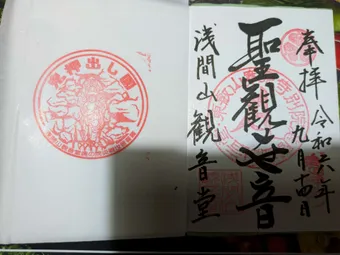 奉拝
令和六年
九月十四日
聖觀世音
浅間山観音堂
鬼押出し園